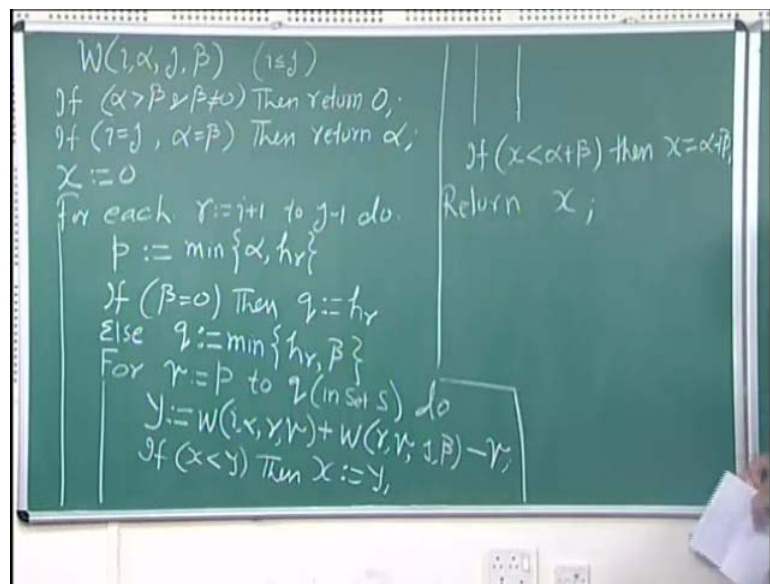 W(i,α, j, β) (i≤j)
If (α>β & β≠0) Then return 0;
If (i=j , α=β) Then return α;
x := 0
For each r:=i+1 to j-1 do.
p := min{α, hr}
If (β=0) Then q := hr
Else q:=min{hr, β}
For γ=p to q (in set S) do
y:= W(i,α, r,γ) + W(r,γ, j,β) - γ;
If (x<y) Then x := y,
If (x<α+β) then x=α+β,
Return x ;